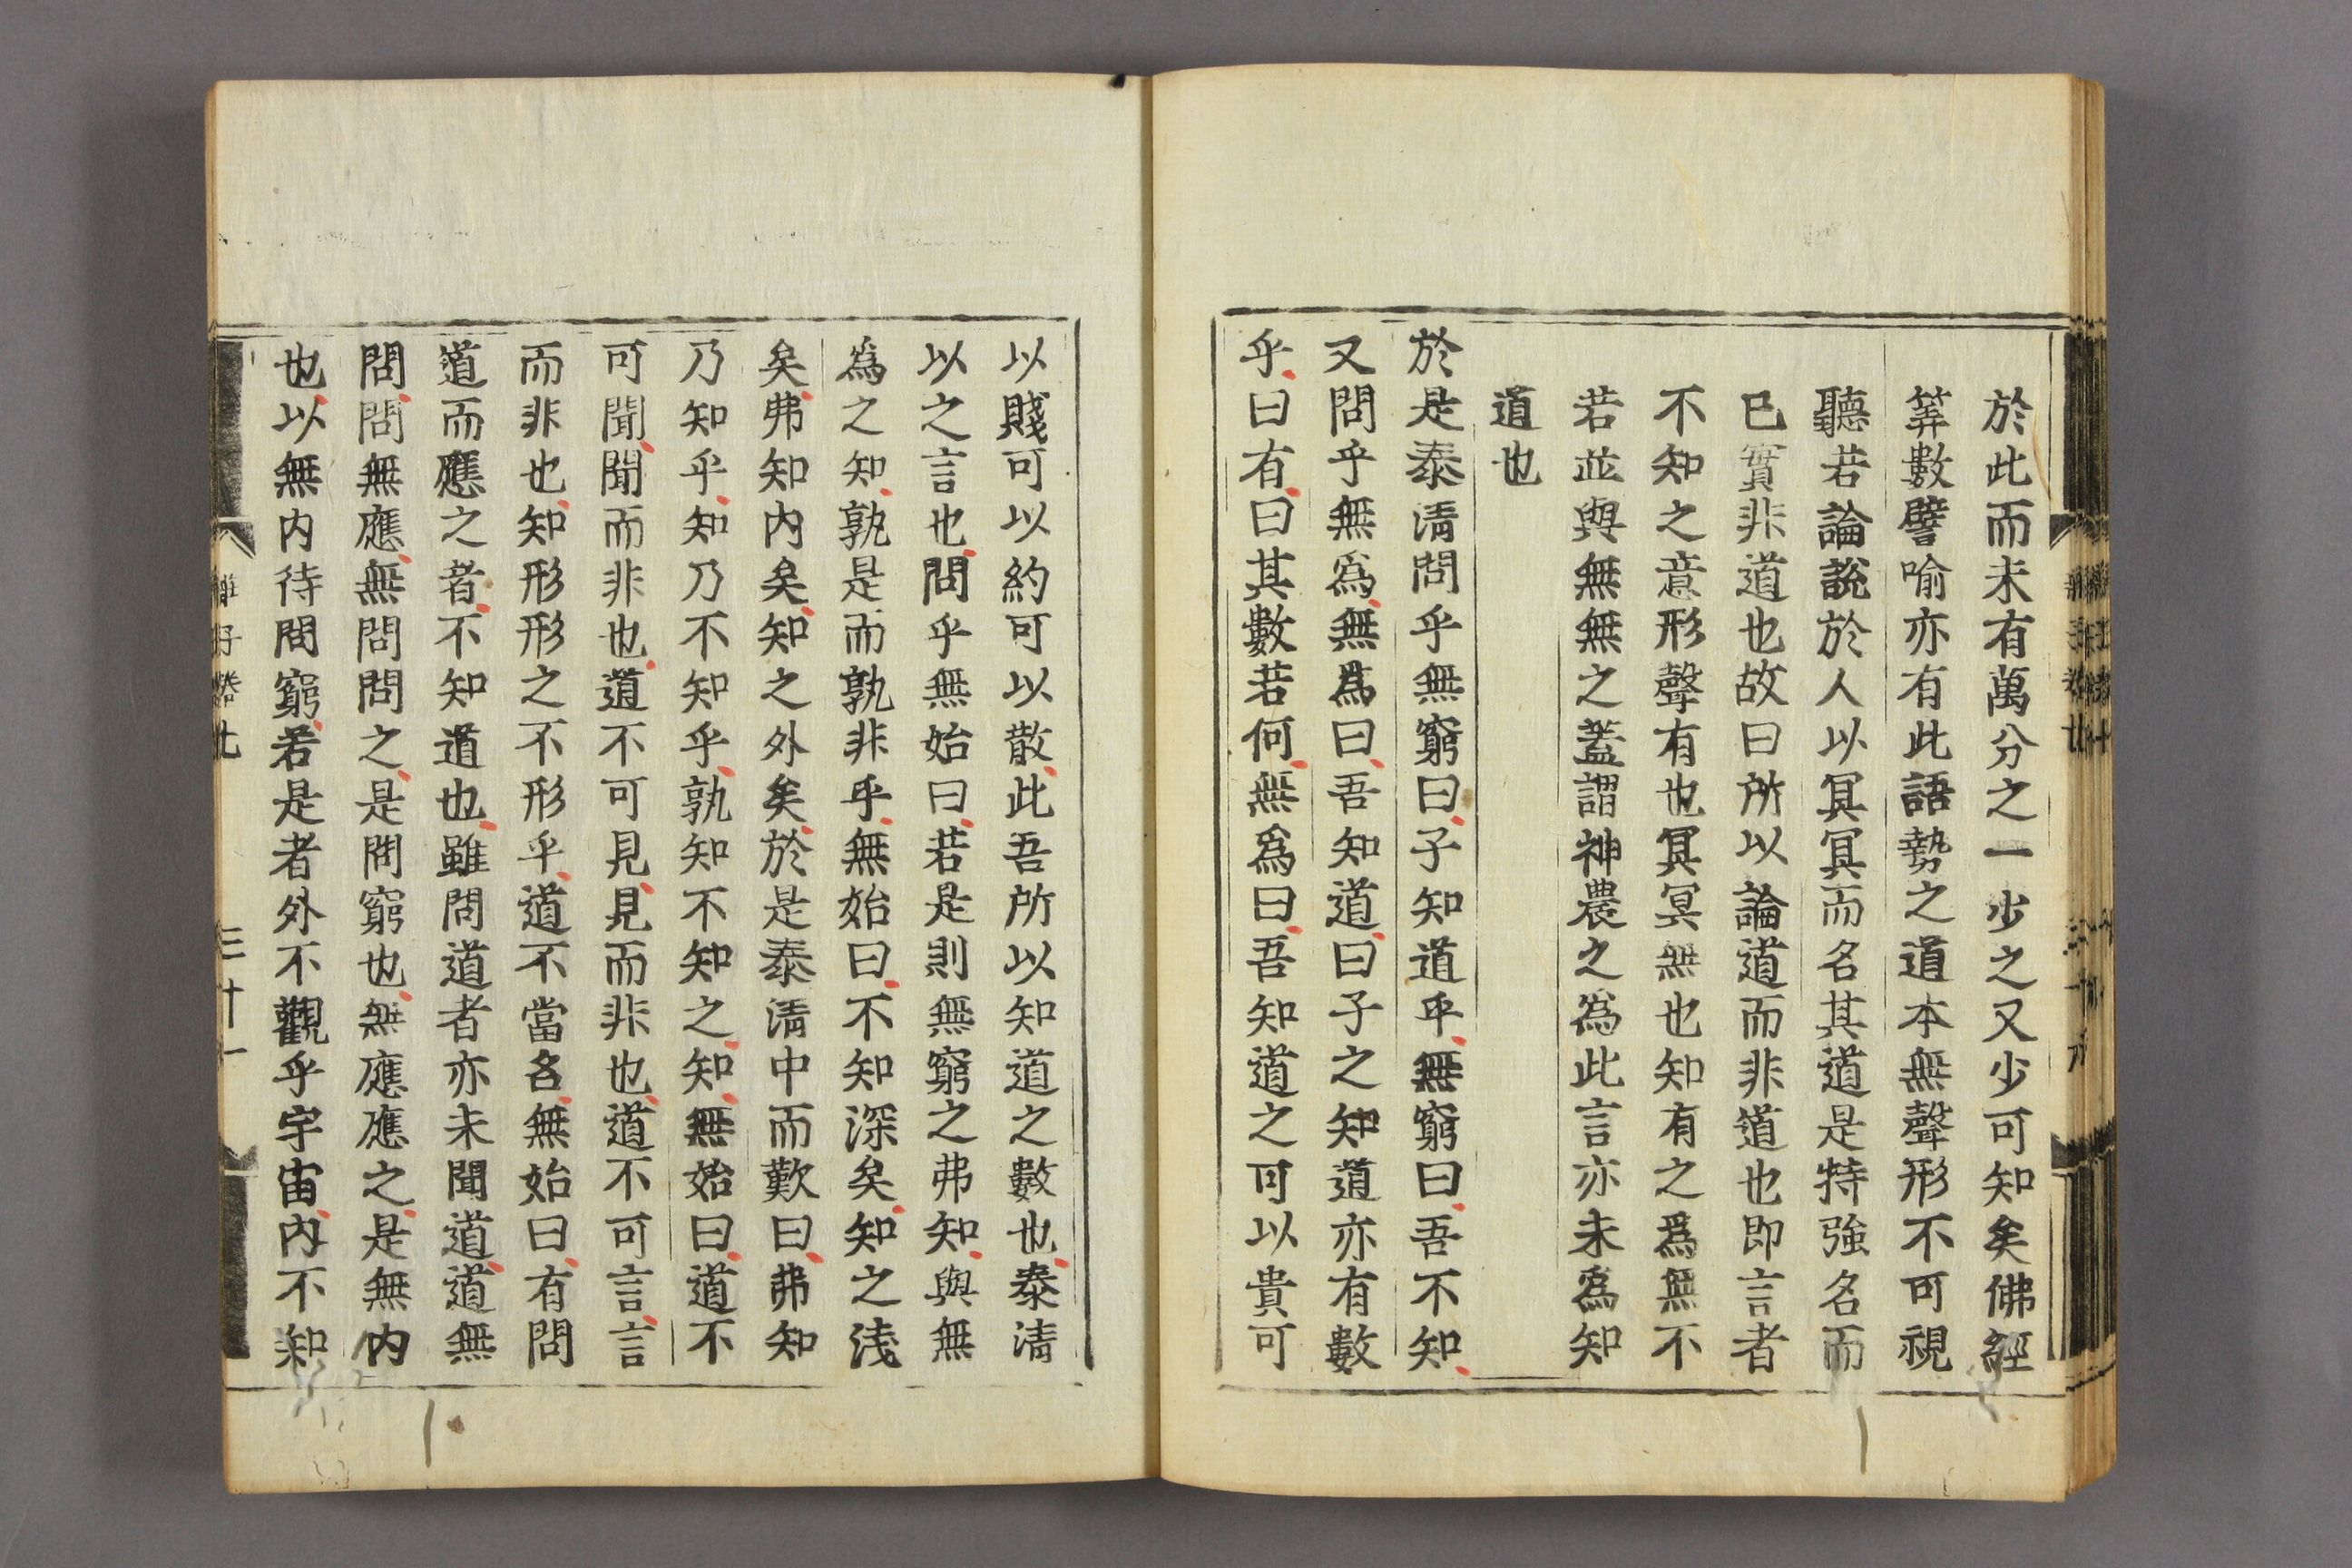 於此而未有萬分之一少之又少可知矣佛經
筭數譬喻亦有此語勢之道本無聲形不可視
聽若論說於人以冥冥而名其道是特強名而
已實非道也故曰所以論道而非道也即言者
不知之意形聲有也冥冥無也知有之爲無不
若並與無無之蓋謂神農之為此言亦未爲知
道也
於是泰清問乎無窮曰子知道乎無窮曰吾不知
又問乎無爲無爲曰吾知道曰子之知道亦有數
乎曰有曰其數若何無爲曰吾知道之可以貴可
以賤可以約可以散此吾所以知道之數也泰清
以之言也問乎無始曰若是則無窮之弗知與無
為之知孰是而孰非乎無始曰不知深矣知之浅
矣弗知内矣知之外矣於是泰清中而歎曰弗知
乃知乎知乃不知乎孰知不知之知無始曰道不
可聞聞而非也道不可見見而非也道不可言言
而非也知形形之不形乎道不當名無始曰有問
道而應之者不知道也雖問道者亦未聞道道無
問問無應無問問之是問窮也無應應之是無内
也以無内待問窮若是者外不觀乎宇宙内不知
三十一